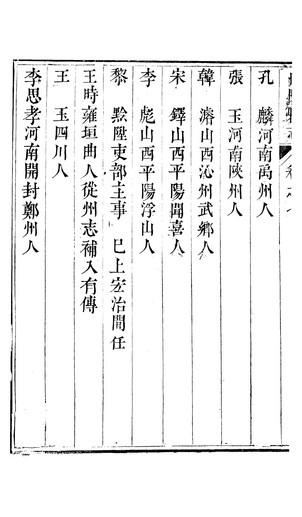 孔　麟河南禹州人
張　玉河南陝州人
韓　濬山西沁州武鄉人
宋　鐸山西平陽聞喜人
李　彪山西平陽浮山人
黎　黕陞吏部主事　巳上宏治間任
王時雍垣曲人從州志補入有傳
王　玉四川人
李思孝河南開封鄭州人